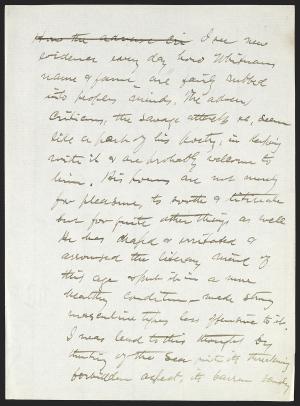 How the adverse cri I see new
evidence every day how Whitman's
name & fame are fairly rubbed
into peoples minds. The adverse
criticisms, the savage attacks &c, seem
like a part of his poetry, in keeping
with it & are probably welcome to
him. His poems are not merely
for pleasure, to soothe &
but for quite other things as well
He has chafed & irritated &
aroused the literary mind of
this age & put it in a more
healthy condition – made strong
masculine types less offensive to it.
I was lead to this thought by
thinking of the sea with its
forbidden aspect, its barren sandy